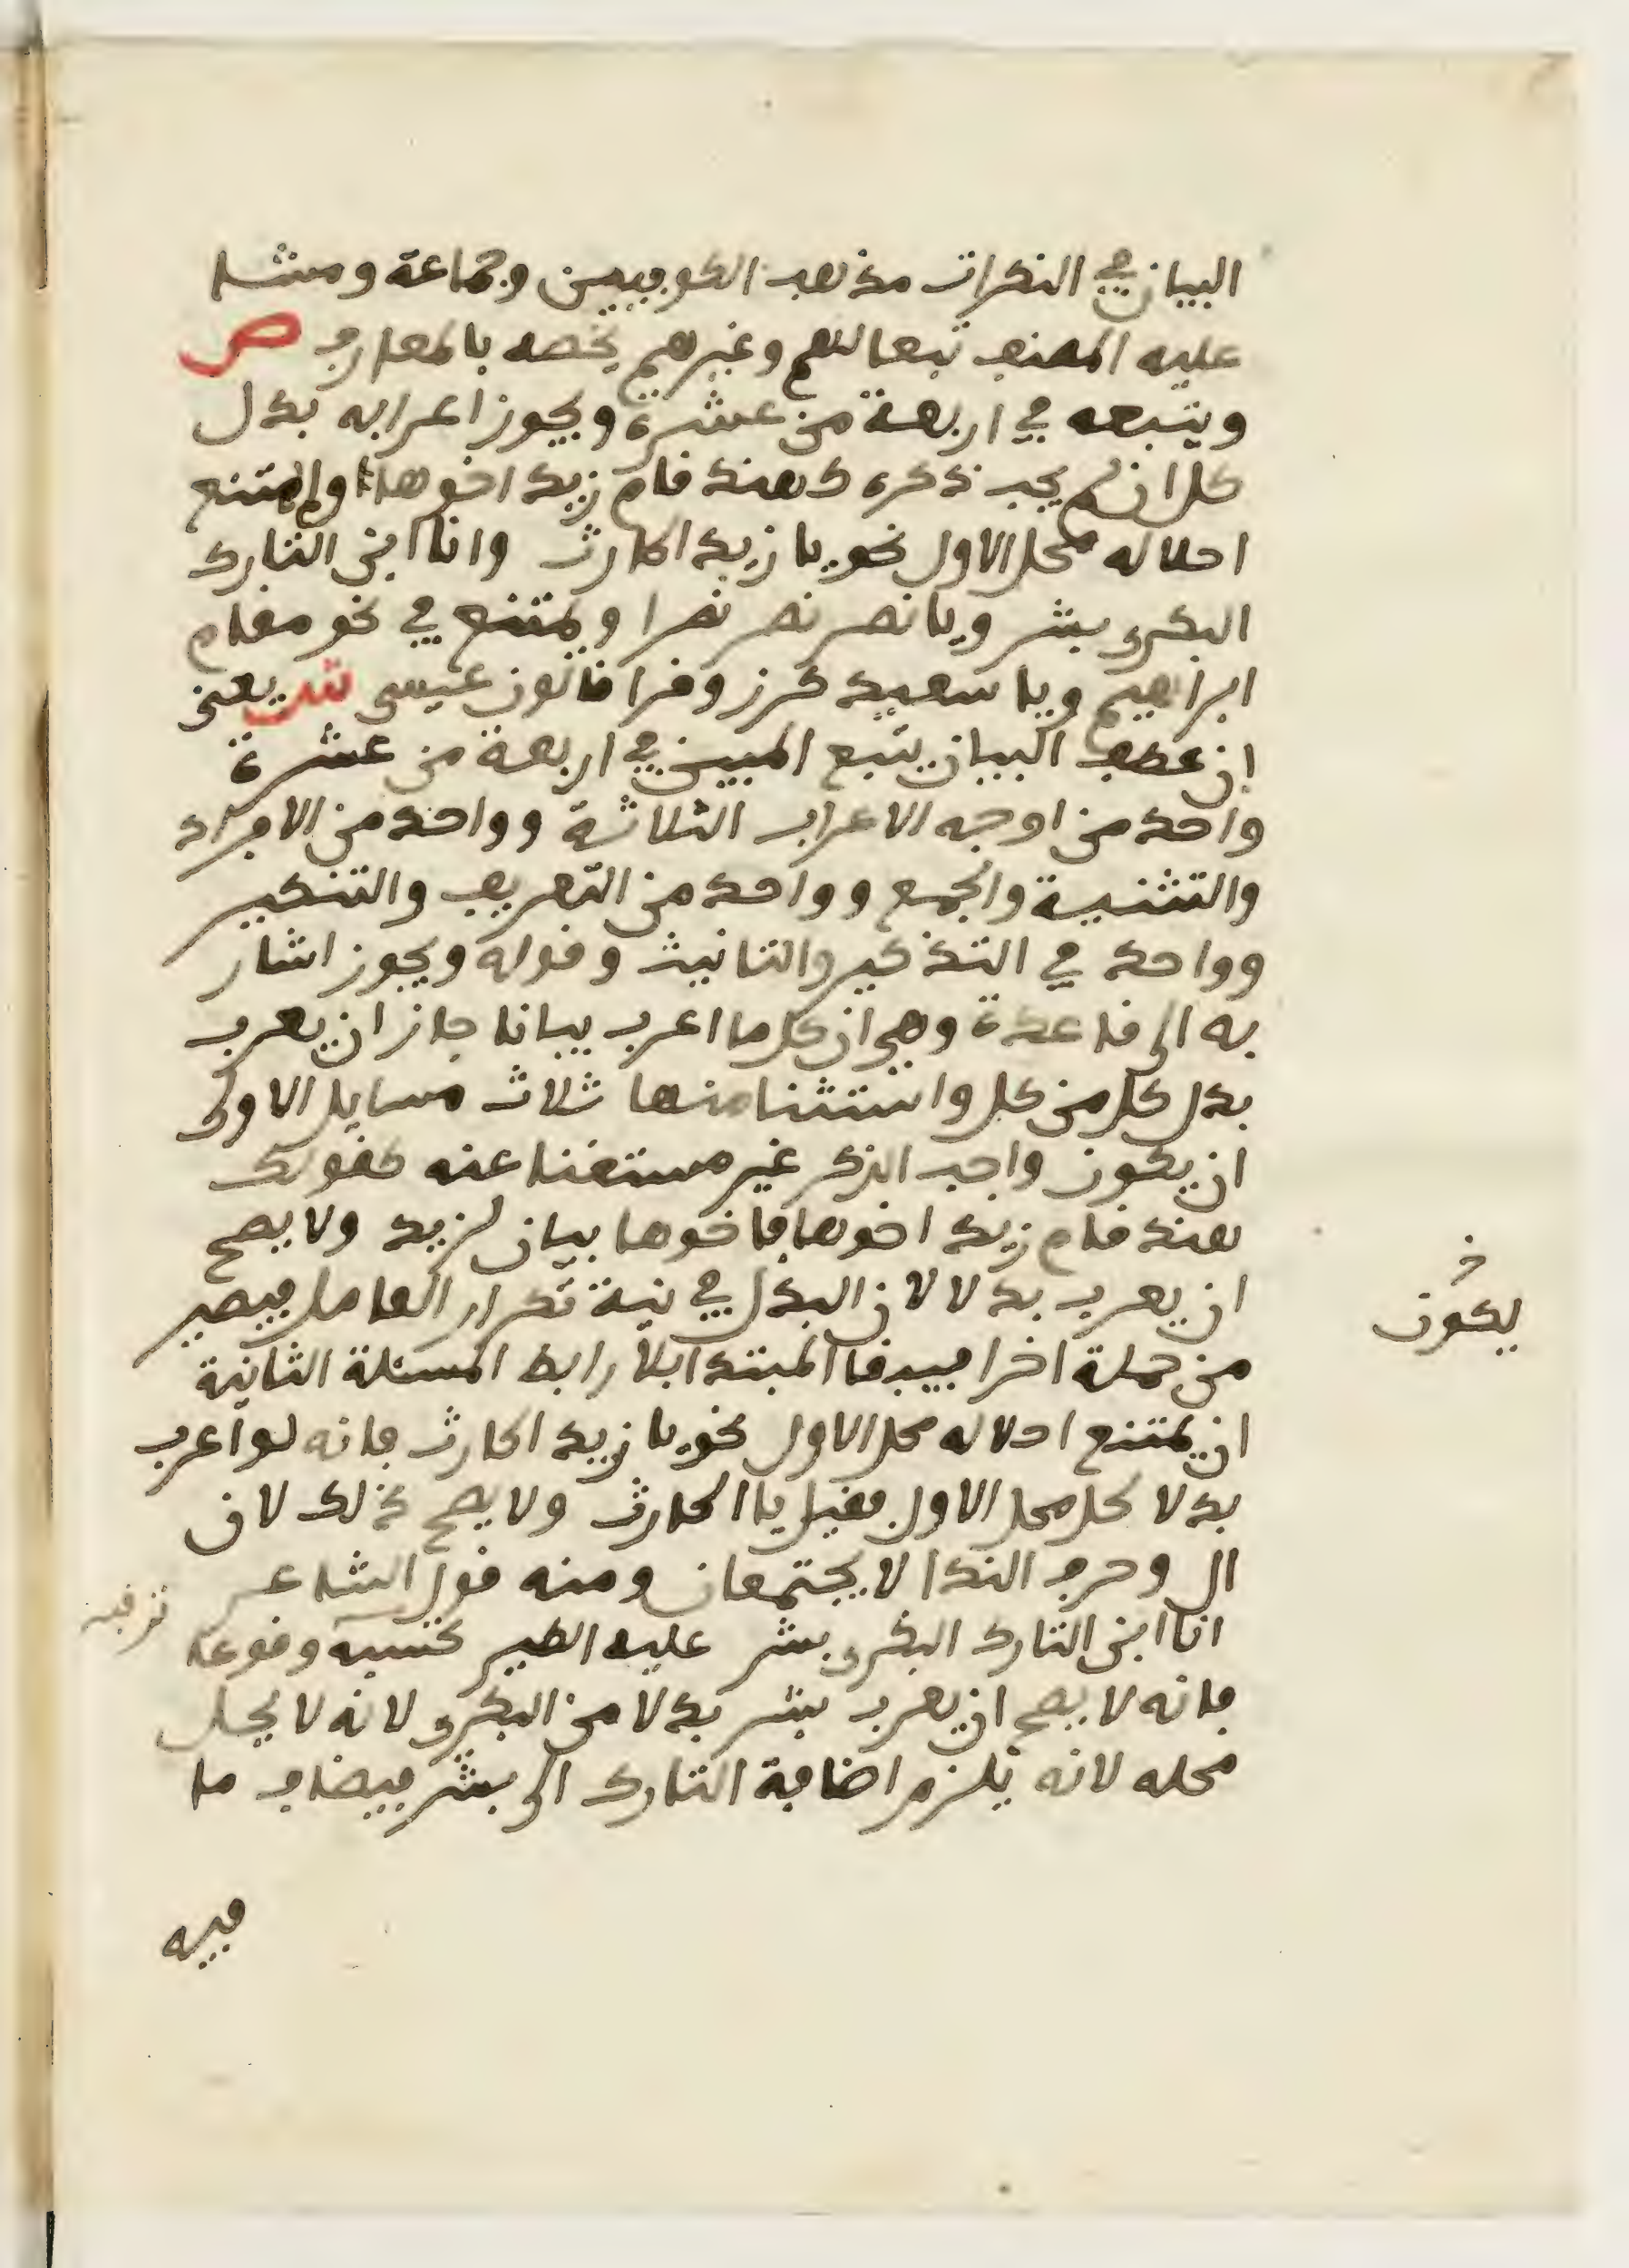 البيان في النكرات مذهب الكوفيين وجماعة ومشا
عليه المصنف تبعا لهم وغيرهم يخصه بالمعارف ص
ويتبعه في اربعة من عشرة ويجوز اعرابه بدل
كل ان لم يجب ذكره كهند قام زيد اخوها ولم يمتنع
احلاله محل الاول نحو يا زيد الحارث وانا ابن التارك
البكري بشر ويا نصر نصر نصرا ويمتنع في نحو مقام
ابراهيم ويا سعيد كرز وقرا قالون عيسى ش يعني
ان عطف البيان يتبع المبين في اربعة من عشرة
واحد من اوجه الاعراب الثلاثة وواحد من الافراد
والتثنية والجمع وواحد من التعريف والتنكير
وواحد في التذكير والتانيث وقوله ويجوز اشار
به الى قاعدة وهي ان كل ما اعرب بيانا جاز ان يعرب
بدل كل من كل واستثنا منها ثلاث مسايل الاولى
ان يكون واجب الذكر غير مستغنا عنه كقولك
هند قام زيد اخوها فاخوها بيان لزيد ولا يصح
ان يعرب بدلا لان البدل في نية تكرار العامل فيصير
يكون
من جملة اخرا فيبقا المبتدا بلا رابط المسئلة الثانية
ان يمتنع احلاله محل الاول نحو يا زيد الحارث فانه لو اعرب
بدلا لحل محل الاول فقيل يا الحارث ولا يصح ذلك لان
ال وحرف الندا لا يجتمعان ومنه قول الشاعر
انا ابن التارك البكري بشر عليه الطير ترقبه وقوعا
ترقبه
فانه لا يصح ان يعرب بشر بدلا من البكري لانه لا يحل
محله لانه يلزم اضافة التارك الى بشر فيضاف ما
فيه